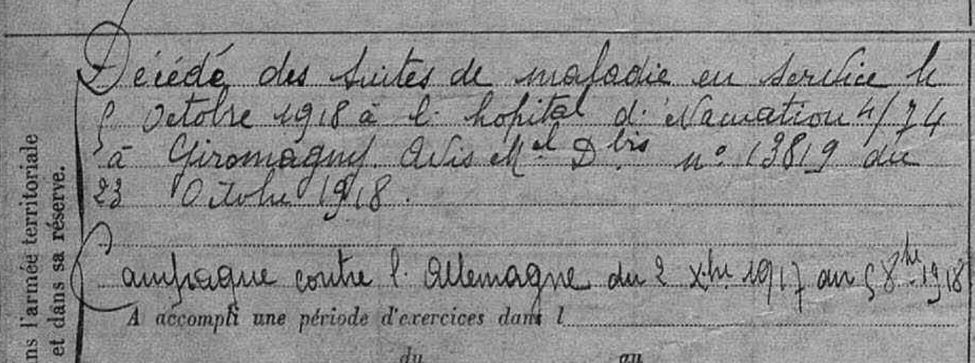 Décédé des suites de maladie en service le
5 Octobre 1918 à l'hopital d'évacuation 4/74
à Giromagny. Avis Mel D bis n° 13819 du
23 Octobre 1918.
Campagne contre l'Allemagne du 2 Xbre 1917 au 5 8bre 1918
A accompli une période d'exercices dans l
du au
ns l'armée territoriale
et dans sa réserve.